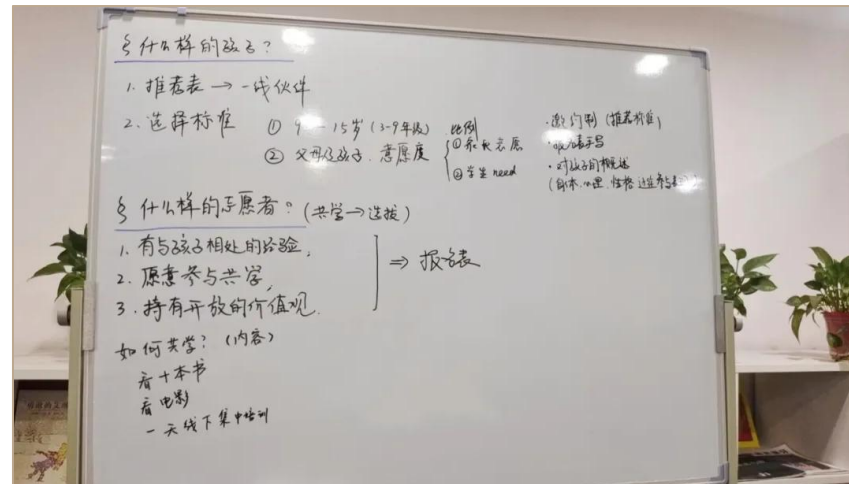 什么样的孩子？
1. 推荐表 → 一线伙伴
2. 选择标准
① 9 — 15岁 (3-9年级)
② 父母及孩子. 意愿度
比例
① 家长意愿
② 学生 need
· 邀约制 (推荐标准)
· 对孩子的概述
什么样的志愿者？(共学→选拔)
1. 有与孩子相处的经验,
2. 愿意参与共学,
3. 持有开放的价值观.
⇒ 报名表
如何共学？(内容)
看十本书
看电影
一天线下集中培训